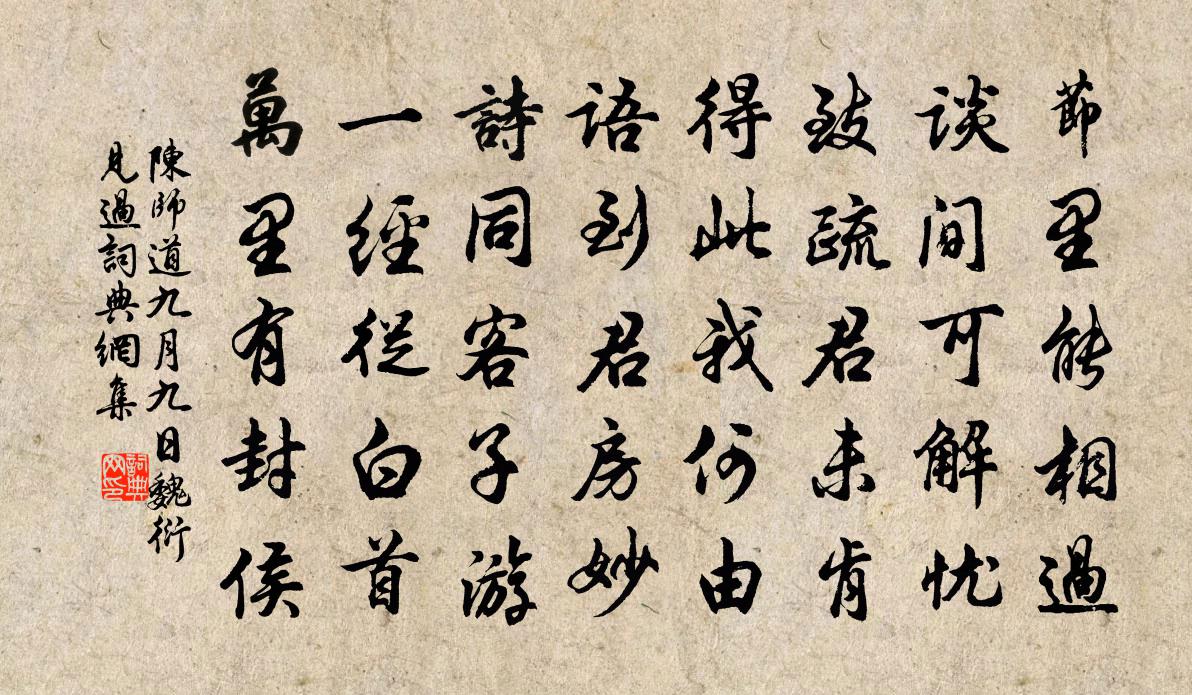 節里能相過
谈间可解忧
致疏君未肯
得此我何由
语到君房妙
詩同客子游
一經從白首
萬里有封侯
陳師道九月九日魏衍
見過詞典網集
詞典
网印